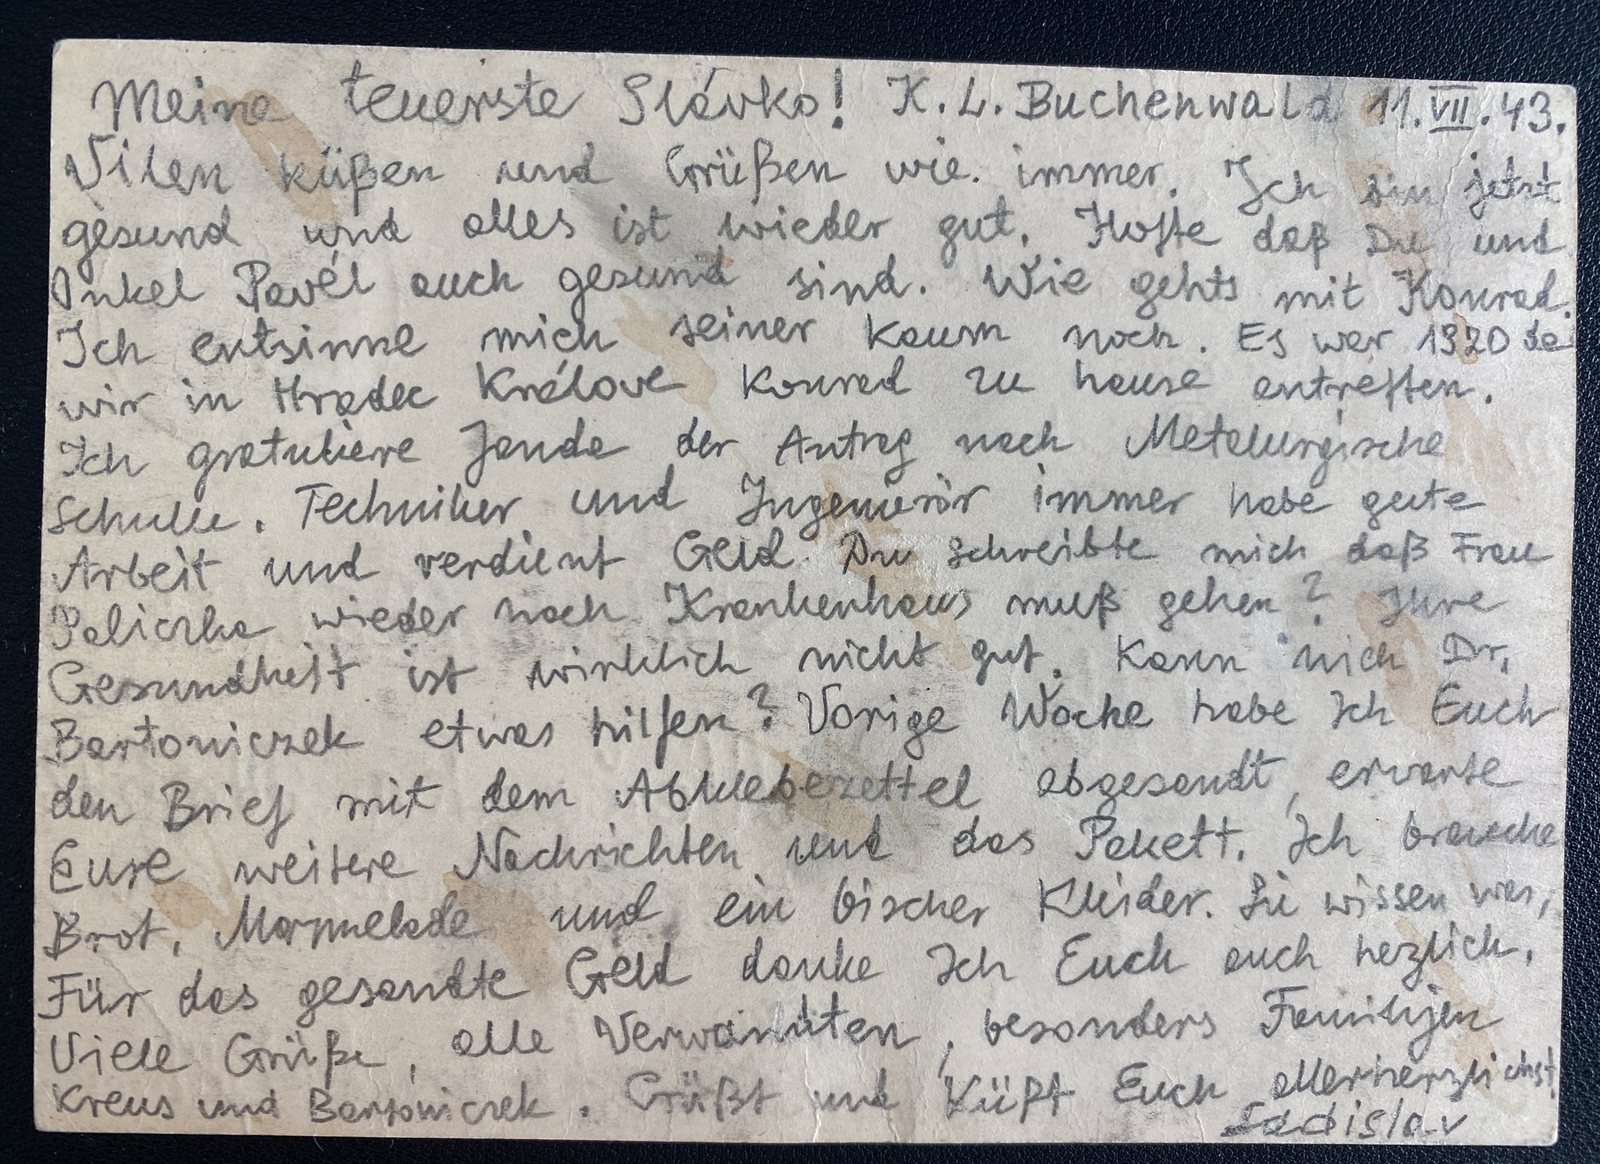 Meine teuerste Slávko! K. L. Buchenwald 11.VII.43.
Vilen küßen und Grüßen wie. immer. Ich bin jetzt
gesund und alles ist wieder gut. Hoffe daß Du und
Onkel Pavel auch gesund sind. Wie gehts mit Konrad.
Ich entsinne mich seiner kaum noch. Es war 1920 da
wir in Hradec Králove Konrad zu hause antreffen.
Ich gratuliere Janda der Antrag nach Metalurgische
Schulle. Techniker und Ingenieör immer habe gute
Arbeit und verdient Geld. Du schreibte mich daß Frau
Paliczka wieder nach Krankenhaus muß gehen? Ihre
Gesundheit ist wirklich nicht gut. Kann nich Dr.
Bartoniczek etwas hilfen? Vorige Woche habe Ich Euch
den Brief mit dem Abklebezettel abgesandt, erwarte
Eure weitere Nachrichten und das Pakett. Ich brauche
Brot, Marmelade und ein bischer Kleider. Sie wissen was,
Für das gesandte Geld danke Ich Euch auch hezlich.
Viele Grüße, alle Verwandten, besonders Familijen
Kreus und Bartoniczek. Grüßt und Küßt Euch allerherzlichst
Ladislav